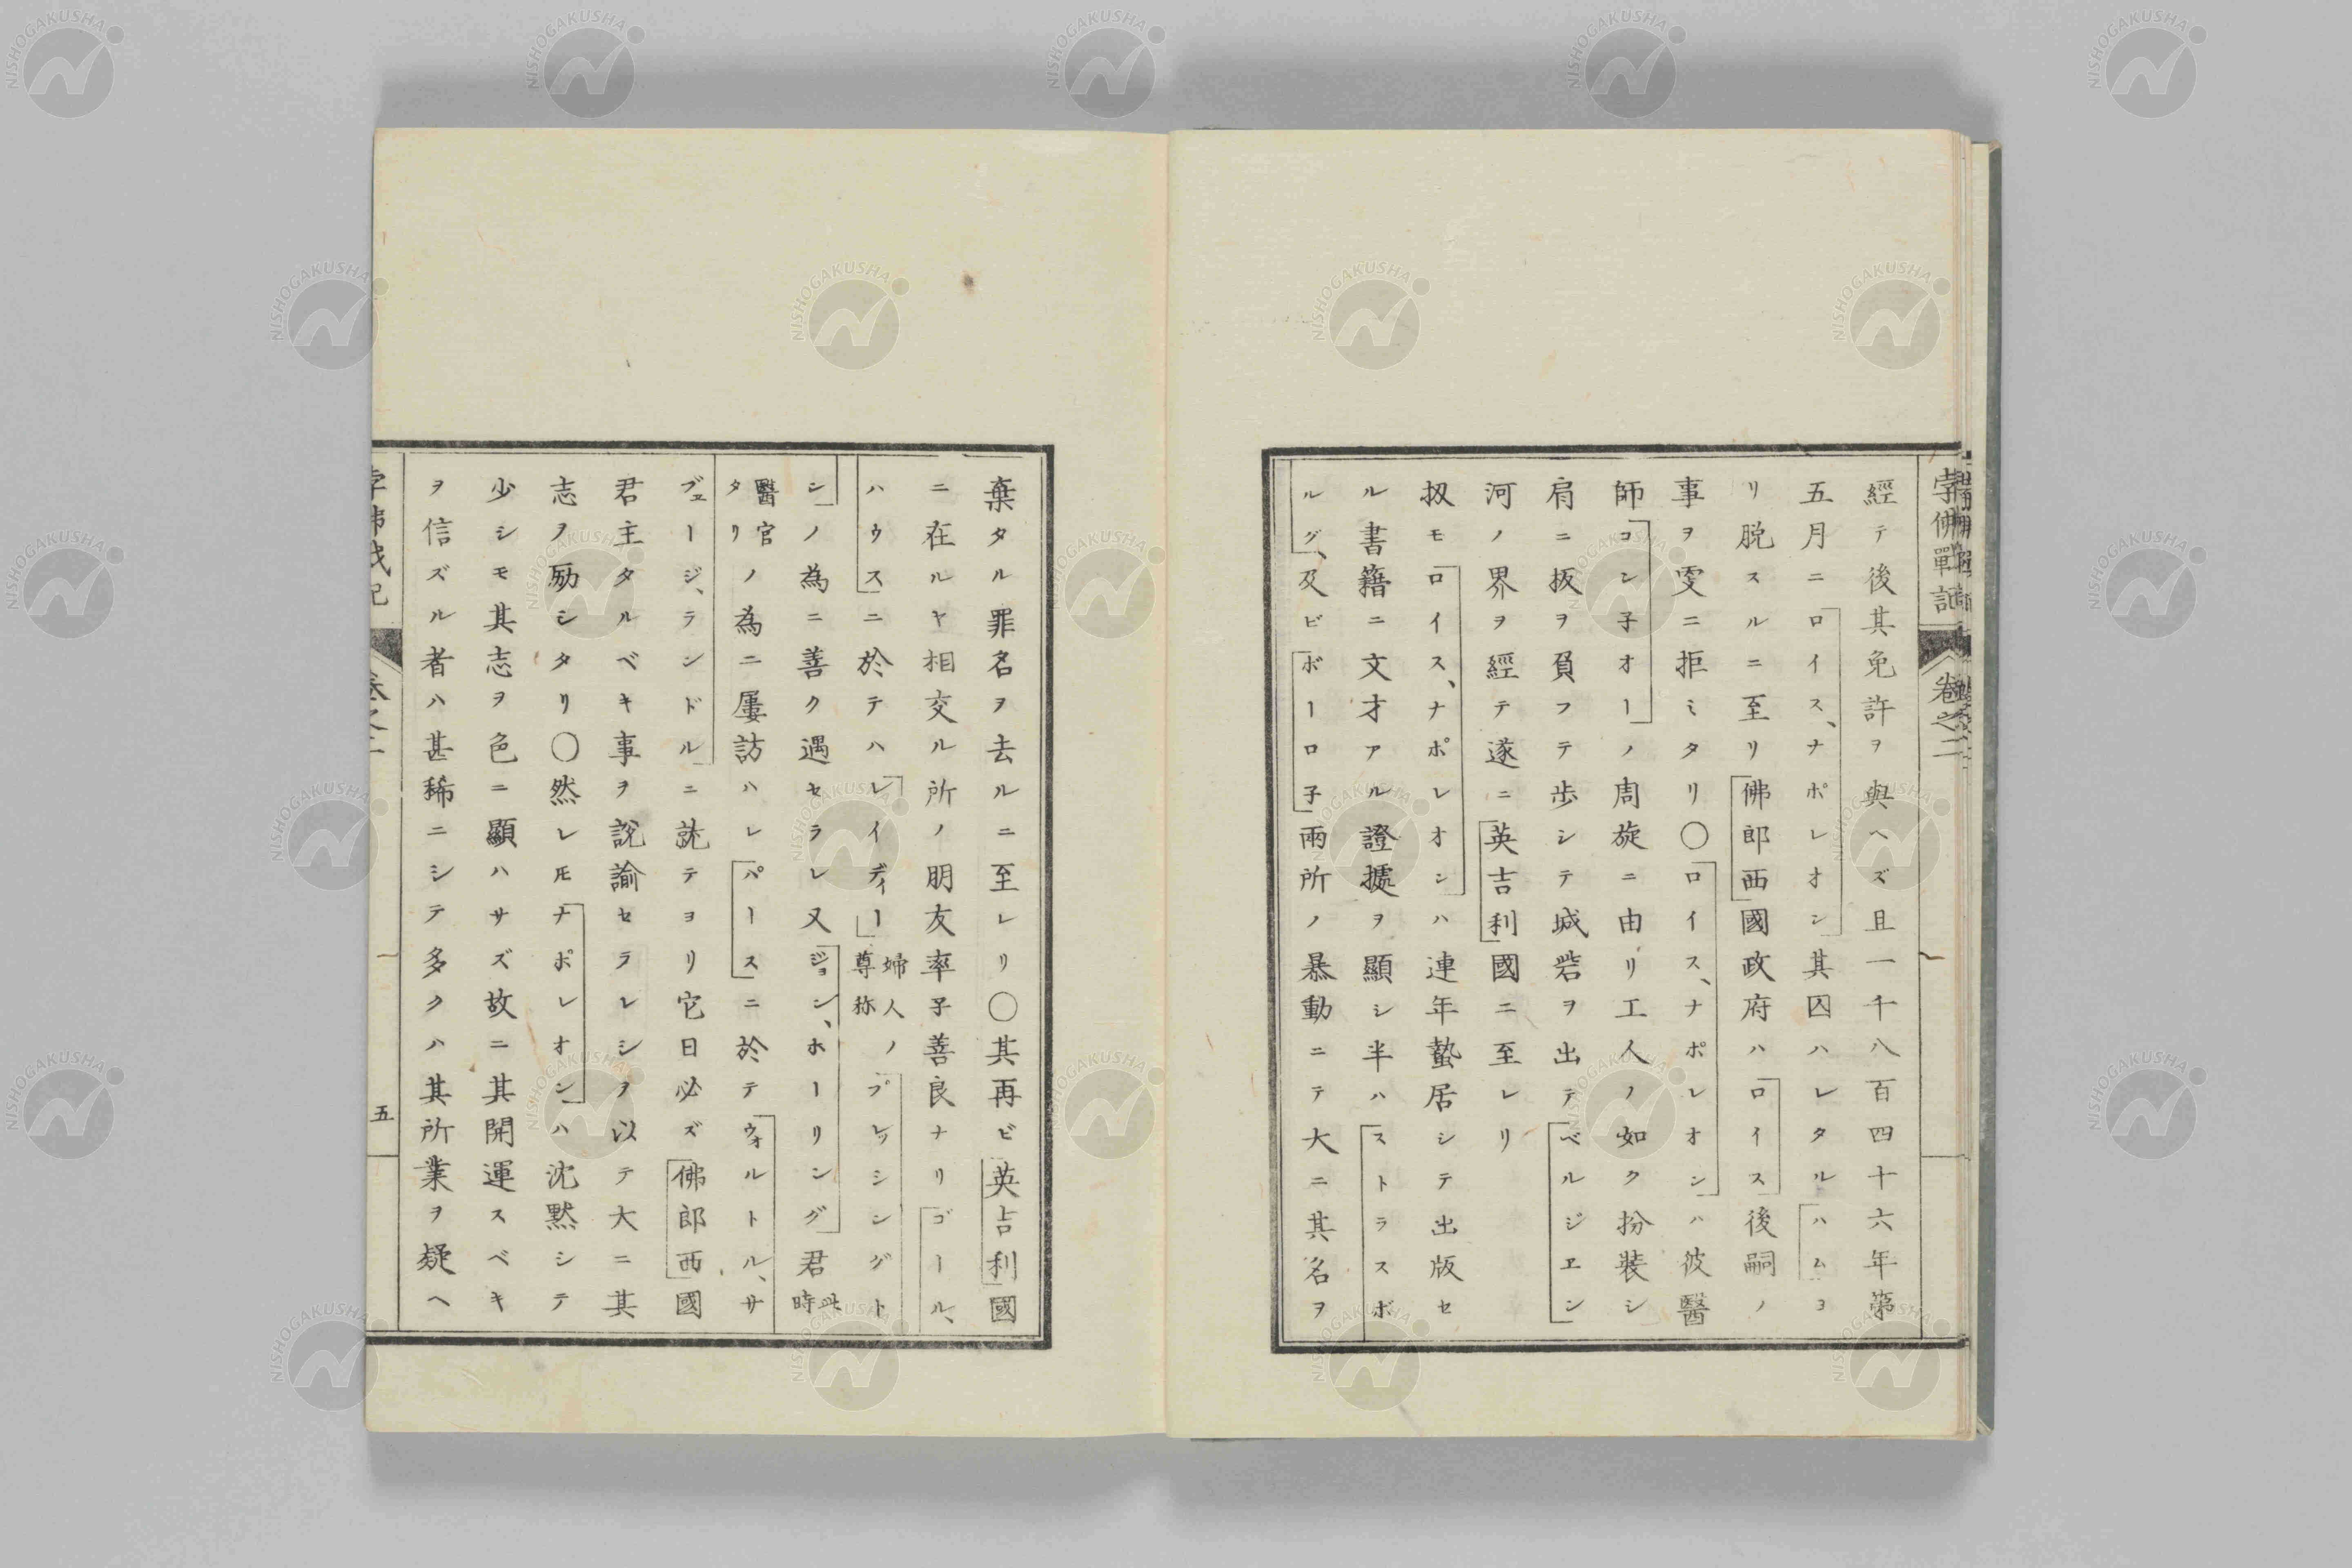 孛佛戰記
卷之二
經テ後其免許ヲ與ヘズ且一千八百四十六年第
五月ニロイス、ナポレオン其囚ハレタルハムヨ
リ脱スルニ至リ佛郎西國政府ハロイス後嗣ノ
事ヲ雯ニ拒ミタリ〇ロイス、ナポレオンハ彼醫
師コン子オーノ周旋ニ由リ工人ノ如ク扮装シ
肩ニ扳ヲ負フテ歩シテ城砦ヲ出テベルジエン
河ノ界ヲ經テ遂ニ英吉利國ニ至レリ
扨モロイス、ナポレオンハ連年蟄居シテ出版セ
ル書籍ニ文才アル證據ヲ顯シ半ハストラスボ
ルグ、及ビボーロ子兩所ノ暴動ニテ大ニ其名ヲ
棄タル罪名ヲ去ルニ至レリ〇其再ビ英吉利國
ニ在ルヤ相交ル所ノ朋友率子善良ナリゴール、
ハウスニ於テハレイディー婦人尊称ノプレッシングト
シノ為ニ善ク遇セラレ又ジョン、ホーリング君此時
醫官タリノ為ニ屢訪ハレパースニ於テウォルトル、サ
ヴェージ、ランドルニ説テヨリ它日必ズ佛郎西國
君主タルベキ事ヲ説諭セラレシヲ以テ大ニ其
志ヲ励シタリ〇然レ𪜈ナポレオンハ沈黙シテ
少シモ其志ヲ色ニ顯ハサズ故ニ其開運スベキ
ヲ信ズル者ハ甚稀ニシテ多クハ其所業ヲ疑ヘ
五
NISHOGAKUSHA